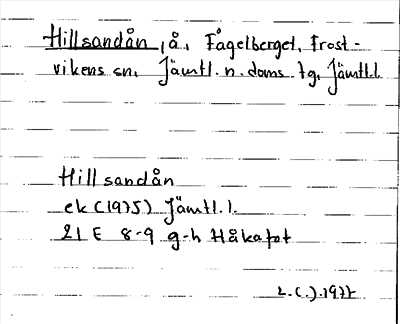 Hillsandån, å, Fågelberget, Frost-
vikens sn, Jämtl. n. doms. tg, Jämtl.l.
Hillsandån
ek (1975) Jämtl. l.
21 E 8-9 g-h Håkafot
1977